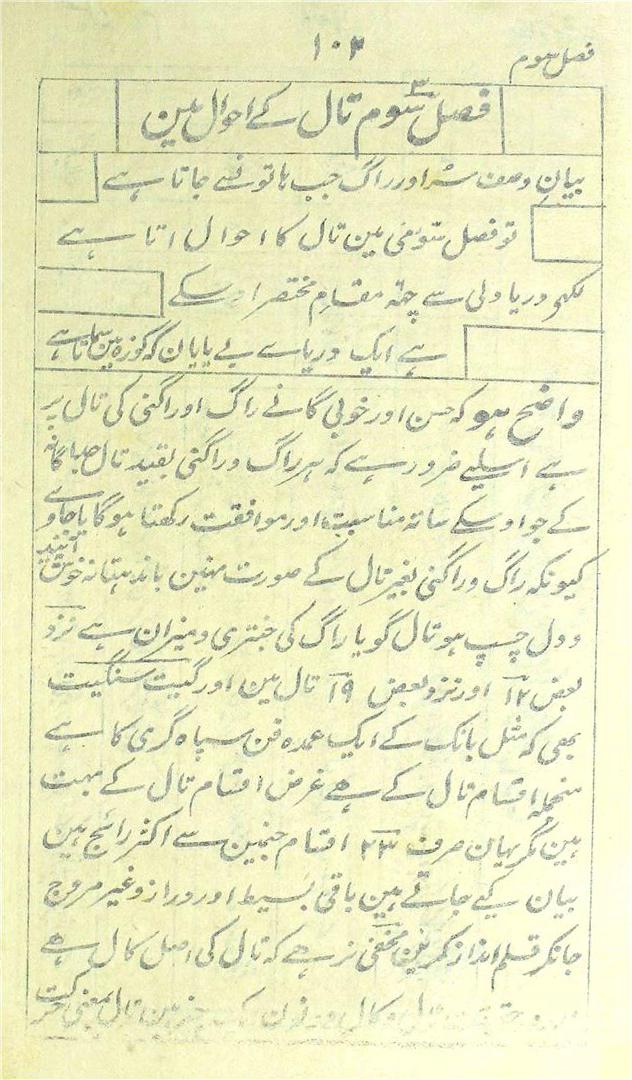 فصل سوم
۱۰۲
فصل سوم تال کے احوال مین
بیان وصف سُر اور راگ جب ہاتو نسے جاتا ہے
تو فصل سوّمی مین تال کا احوال اتا ہے
لکھو دریا ولی سے مقام مختصر اوسکے
ہے ایک دریاے بے پایان کہ کوزہ مین سماتا ہے
واضح ہو کہ حسن اور خوبی گانے راگ اور اگنی کی تال پر
ہے اسلیے ضرور ہے کہ ہر راگ و راگنی بقید تال جداگانہ
کے جو اوسکے ساتہ مناسبت اور موافقت رکھتا ہو گایا جاوے
کیونکہ راگ و راگنی بغیر تال کے صورت نہین باندہتا نہ خوش آیند
و دل چسپ ہو تال گویا راگ کی جنتری و میزان ہے نزد
بعض ۱۲ اور نزد بعض ۱۹ تال ہین اور گیت سنگیت
بھی کہ مثل بانک کے ایک عمدہ فن سپاہ گری کا ہے
منجملہ اقسام تال کے ہے غرض اقسام تال کے بہت
ہین مگر یہان صرف ۲۳ اقسام جنمین سے اکثر رائج ہین
بیان کیے جاتے ہین باقی بسیط اور دراز و غیر مروج
جانکر قلم انداز کمر یقین مخفی نرہے کہ تال کی اصل کال ہے
تال و کال مین تال بمعنی